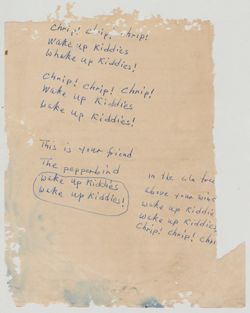 Chrip! chip, chrip!
Wake up Kiddies
Whake up Kiddies!
Chrip! Chrip! Chrip!
Wake up Kiddies
Wake up Kiddies!
This is your friend
The pepperbird
Wake up Kiddies
Wake up Kiddies!
in the
above your
wake up Kiddie
wake up Kiddie
Chrip! chrip! Chri